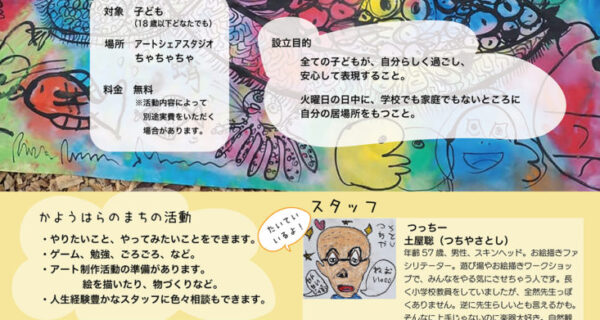 対象 子ども
(18歳以下どなたでも)
場所 アートシェアスタジオ
ちゃちゃちゃ
料金 無料
※活動内容によって
別途実費をいただく
場合があります。
設立目的
全ての子どもが、自分らしく過ごし、
安心して表現すること。
火曜日の日中に、学校でも家庭でもないところに
自分の居場所をもつこと。
かようはらのまちの活動
・やりたいこと、やってみたいことをできます。
・ゲーム、勉強、ごろごろ、など。
・アート制作活動の準備があります。
絵を描いたり、物づくりなど。
・人生経験豊かなスタッフに色々相談もできます。
スタッフ
たいてい
いるよ!
つっちー
土屋聡(つちやさとし)
年齢57歳、男性、スキンヘッド。お絵描きファ
シリテーター。遊び場やお絵描きワークショッ
プで、みんなをやる気にさせちゃう人です。長
く小学校教員をしていましたが、全然先生っぽ
くありません。逆に先生らしいとも言えるかも。
そんなに上手じゃないのに楽器大好き。自然観